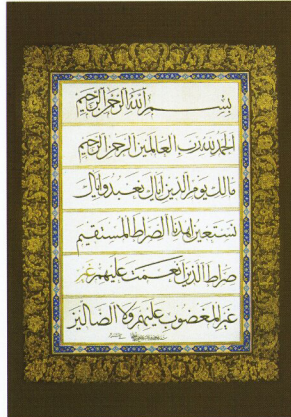 بسم الله الرحمن الرحیم
الحمد لله رب العالمین الرحمن الرحیم
مالك یوم الدین ایاك نعبد وایاك
نستعین اهدنا الصراط المستقیم
صراط الذین انعمت علیهم غیر
غیر المغضوب علیهم ولا الضالین